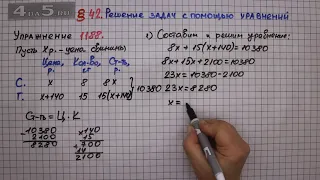 4 на 5.ru
§ 42. Решение задач с помощью уравнений
Упражнение 1188.
Пусть х р. - цена свинины
Цена, Кол-во, Ст-ть,
р. кг р.
С. х 8 8х
Г. х+140 15 15(х+140)
10380
Ст = Ц · К
-10380
2100
8280
×140
15
+700
14
2100
1) Составим и решим уравнение:
8х + 15(х+140) = 10380
8х + 15х + 2100 = 10380
23х = 10380 - 2100
23х = 8280
х =